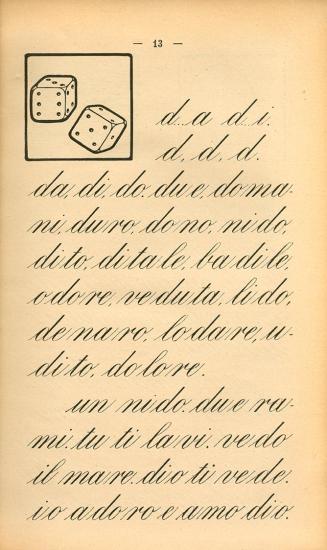 — 13 —
d. a d i.
d. d. d.
da. di. do. due, doma-
ni, duro, dono, nido,
dito, ditale, badile,
odore, veduta, lido,
denaro, lodare, u-
dito, dolore.
un nido. due ra-
mi. tu ti lavi. vedo
il mare. dio ti vede.
io adoro e amo dio.